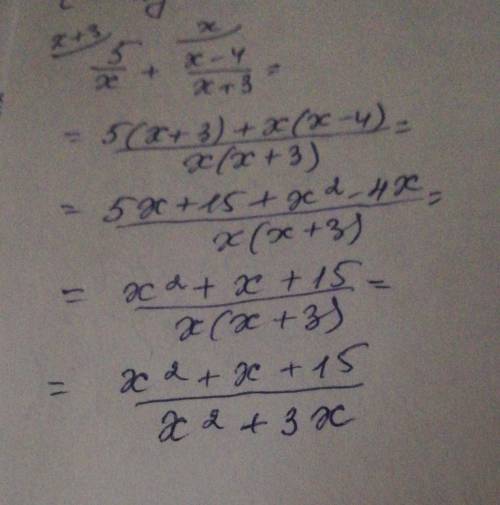 x+3 x
5/x + (x-4)/(x+3) =
= (5(x+3)+x(x-4))/(x(x+3)) =
= (5x+15+x²-4x)/(x(x+3)) =
= (x²+x+15)/(x(x+3)) =
= (x²+x+15)/(x²+3x)